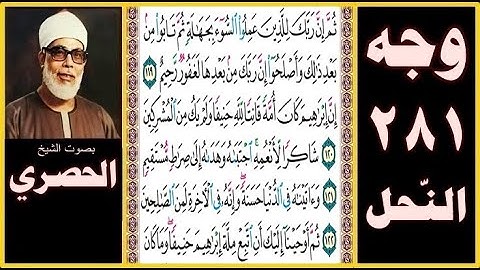 وجه
٢٨١
النّحل
ثُمَّ إِنَّ رَبَّكَ لِلَّذِينَ عَمِلُوا۟ ٱلسُّوٓءَ بِجَهَٰلَةٍ ثُمَّ تَابُوا۟ مِنۢ
بَعْدِ ذَٰلِكَ وَأَصْلَحُوٓا۟ إِنَّ رَبَّكَ مِنۢ بَعْدِهَا لَغَفُورٌ رَّحِيمٌ ١١٩
إِنَّ إِبْرَٰهِيمَ كَانَ أُمَّةً قَانِتًا لِّلَّهِ حَنِيفًا وَلَمْ يَكُ مِنَ ٱلْمُشْرِكِينَ
١٢٠ شَاكِرًا لِّأَنْعُمِهِ ٱجْتَبَىٰهُ وَهَدَىٰهُ إِلَىٰ صِرَٰطٍ مُّسْتَقِيمٍ
١٢١ وَءَاتَيْنَٰهُ فِى ٱلدُّنْيَا حَسَنَةً وَإِنَّهُۥ فِى ٱلْءَاخِرَةِ لَمِنَ ٱلصَّٰلِحِينَ
١٢٢ ثُمَّ أَوْحَيْنَآ إِلَيْكَ أَنِ ٱتَّبِعْ مِلَّةَ إِبْرَٰهِيمَ حَنِيفًا وَمَا كَانَ
بصوت الشيخ
الحصري